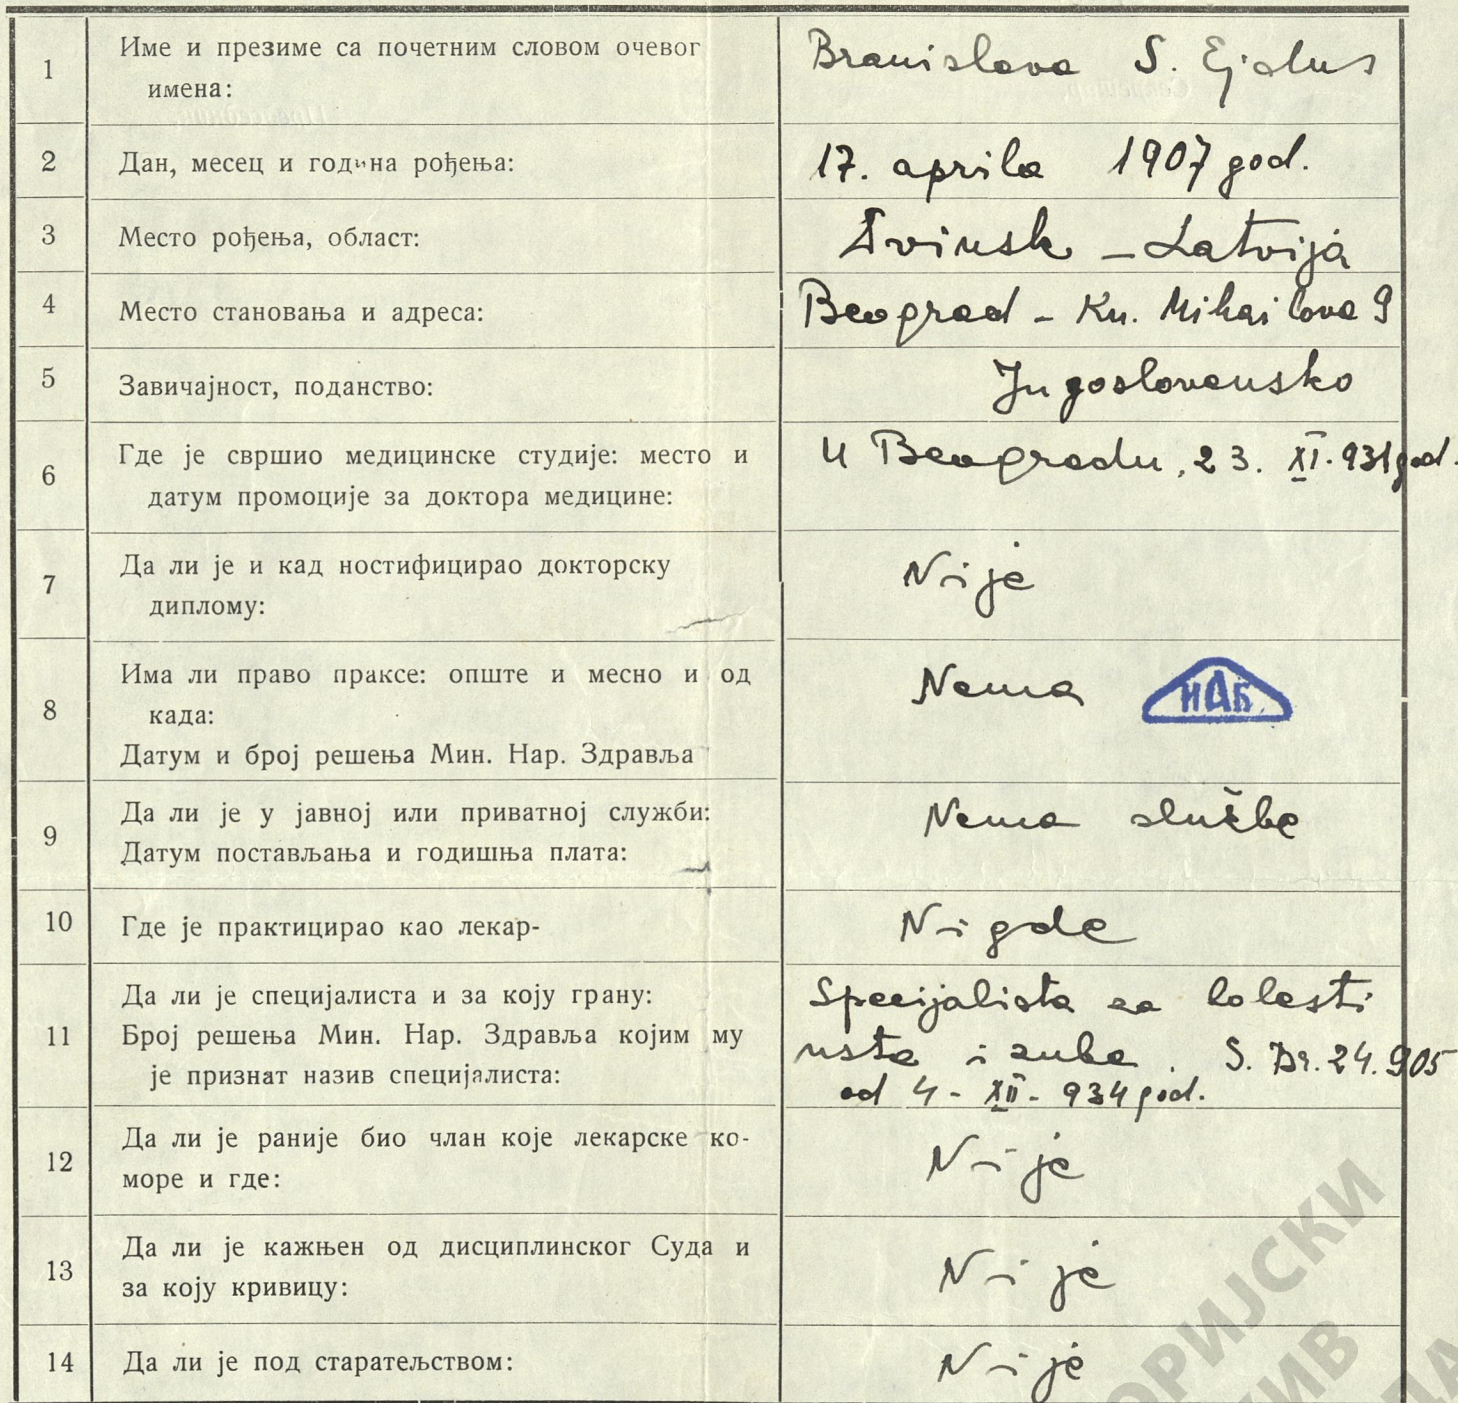 1
Име и презиме са почетним словом очевог
имена:
Branislava S. Ejdus
2
Дан, месец и година рођења:
17. aprila 1907 god.
3
Место рођења, област:
Dvinsk - Latvija
4
Место становања и адреса:
Beograd - Kn. Mihailova 9
5
Завичајност, поданство:
Jugoslovensko
6
Где је свршио медицинске студије: место и
датум промоције за доктора медицине:
U Beogradu, 23. XI. 931 god.
7
Да ли је и кад ностифицирао докторску
диплому:
Nije
8
Има ли право праксе: опште и месно и од
када:
Датум и број решења Мин. Нар. Здравља
Nema
ИАБ
9
Да ли је у јавној или приватној служби:
Датум постављања и годишња плата:
Nema službe
10
Где је практицирао као лекар-
Nigde
11
Да ли је специјалиста и за коју грану:
Број решења Мин. Нар. Здравља којим му
је признат назив специјалиста:
Specijalista za bolesti
usta i zuba. S. Br. 24.905
od 4 - XII - 934 god.
12
Да ли је раније био члан које лекарске ко-
море и где:
Nije
13
Да ли је кажњен од дисциплинског Суда и
за коју кривицу:
Nije
14
Да ли је под старатељством:
Nije